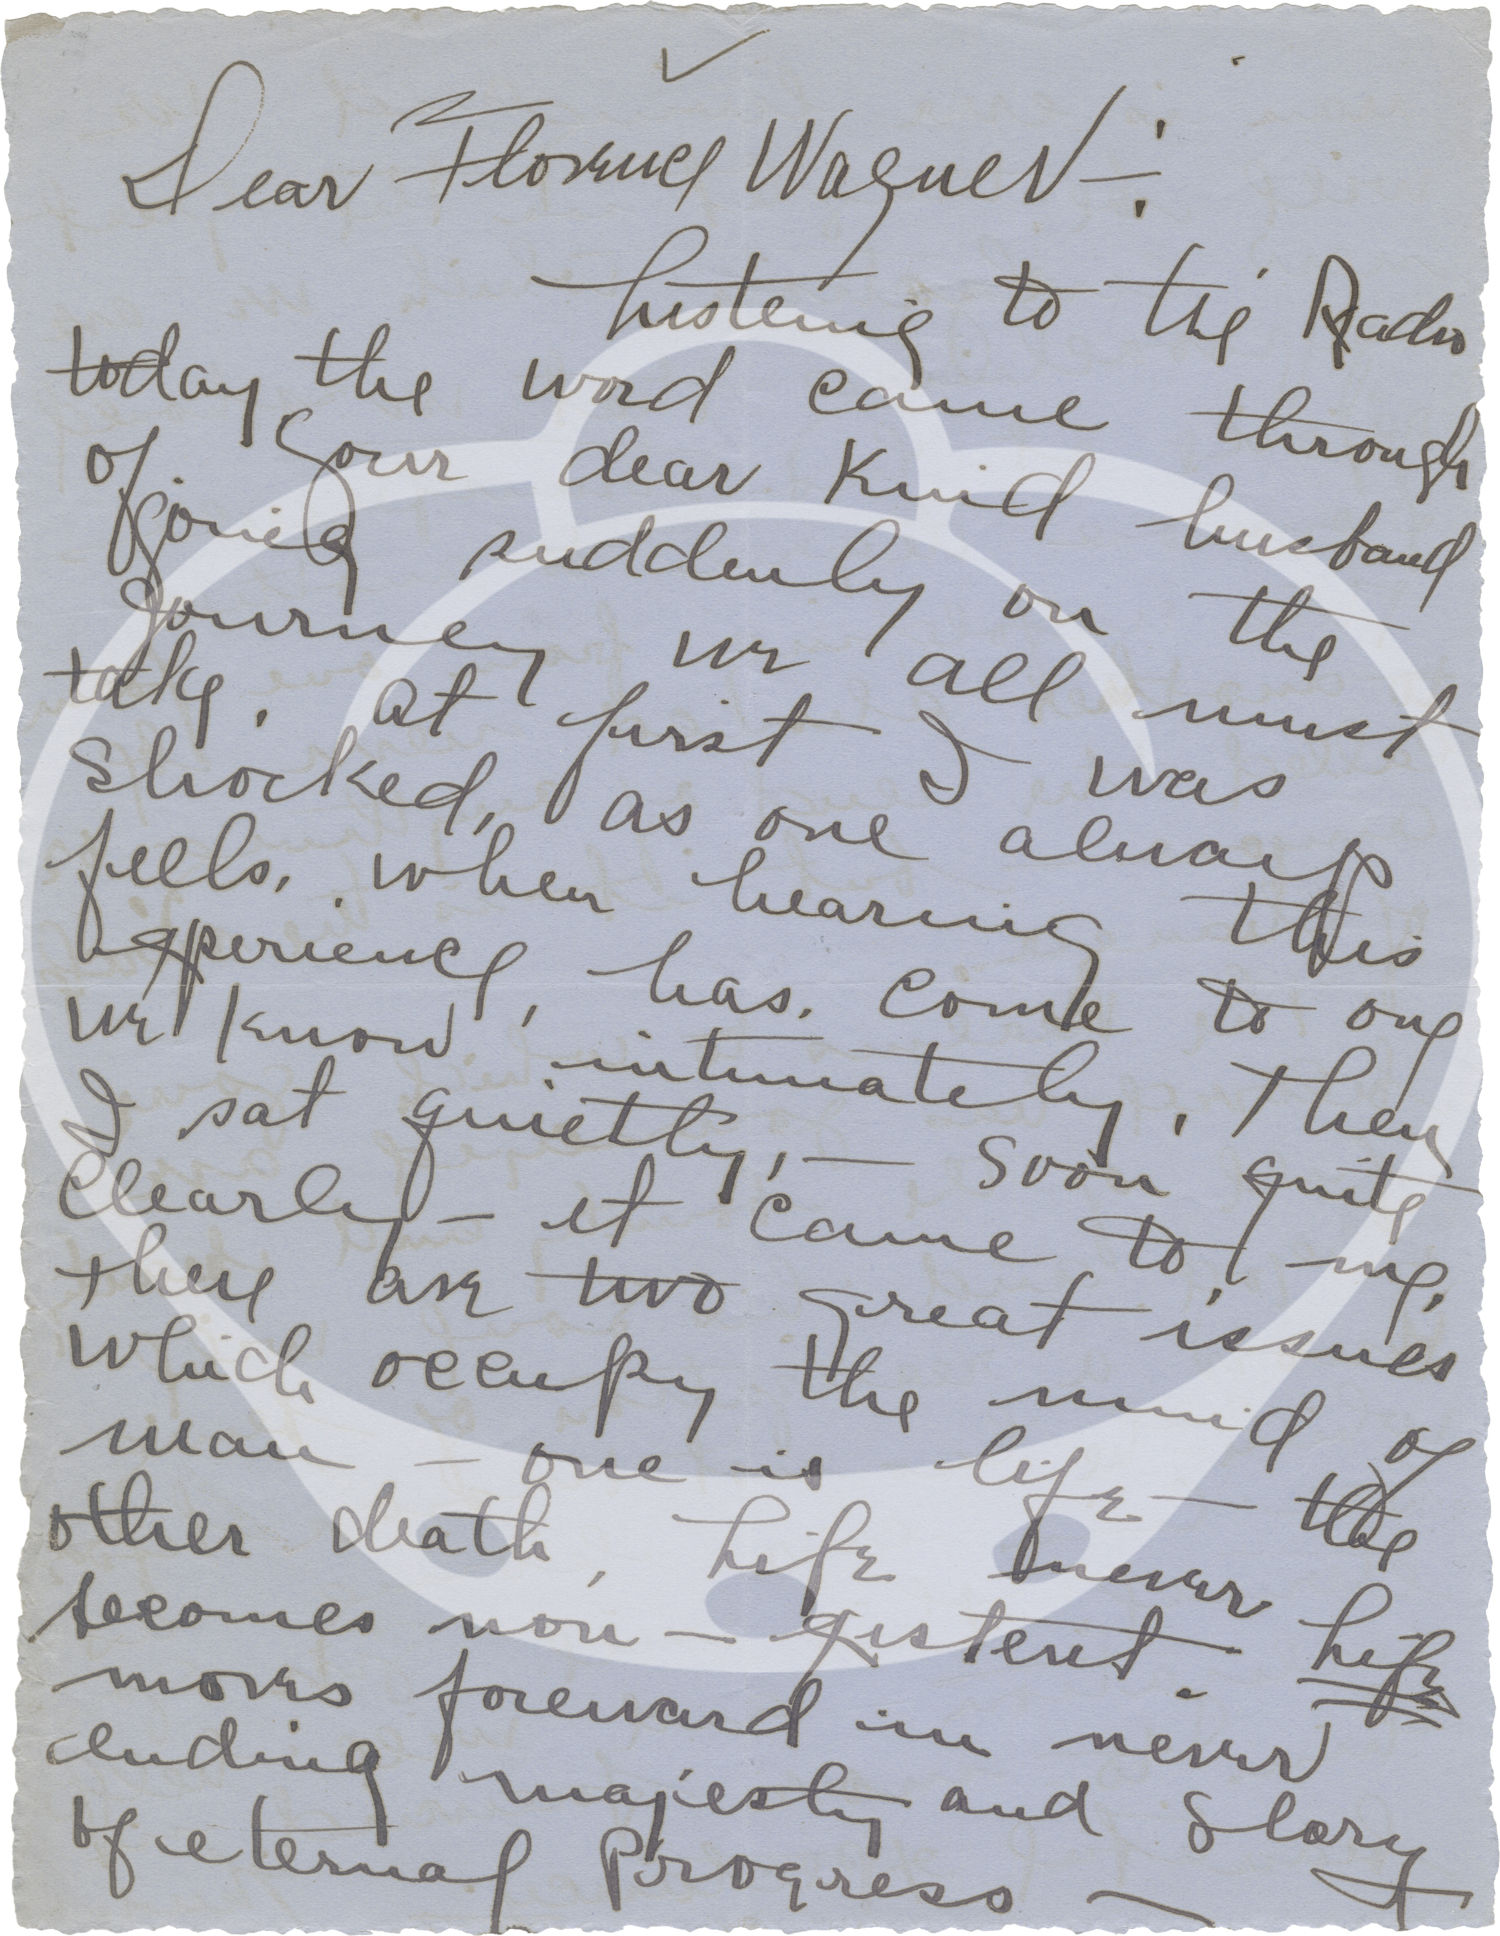 Dear Florence Wagner—:
Listening to the Radio
today the word came through
of your dear kind husband
going suddenly on the
journey we all must
take. At first I was
shocked, as one always
feels, when hearing this
experience, has. come to one
we know intimately. Then
I sat quietly,— soon quite
clearly— it came to me,
there are two great issues
which occupy the mind of
man — one is life — the
other death, Life never
becomes non—existent. Life
moves foreward in never
ending majesty and Glory
of eternal Progress —